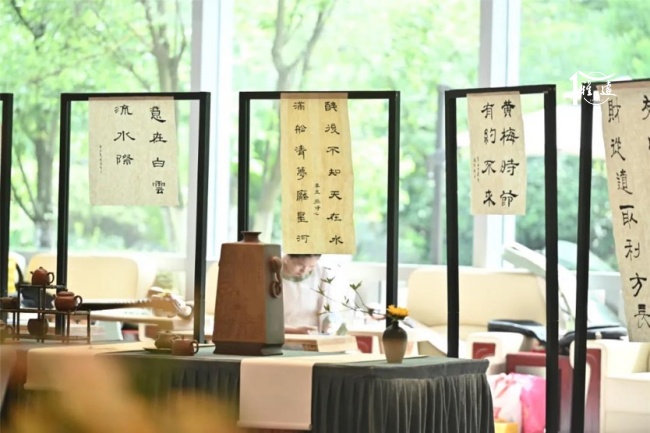 意在白雲
流水際
醉後不知天在水
滿船清夢壓星河
黃梅時節
有約不來
財從遠取利方長